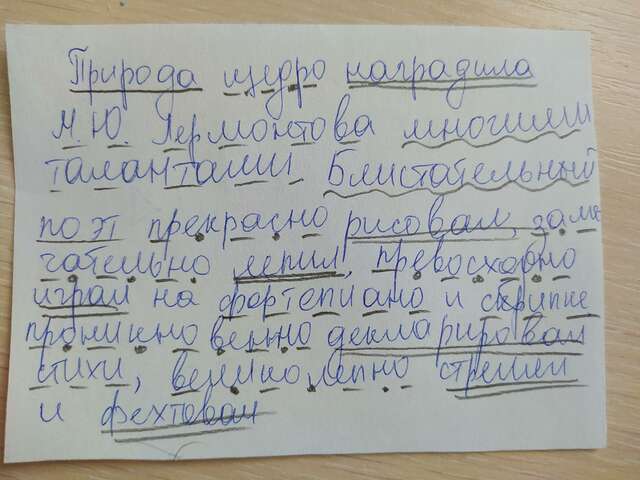 Природа щедро наградила
М.Ю. Лермонтова многими
талантами Блистательный
поэт прекрасно рисовал, заме
чательно лепил, превосходно
играл на фортепиано и скрипке
проникновенно декларировал
стихи, великолепно стрелял
и фехтовал